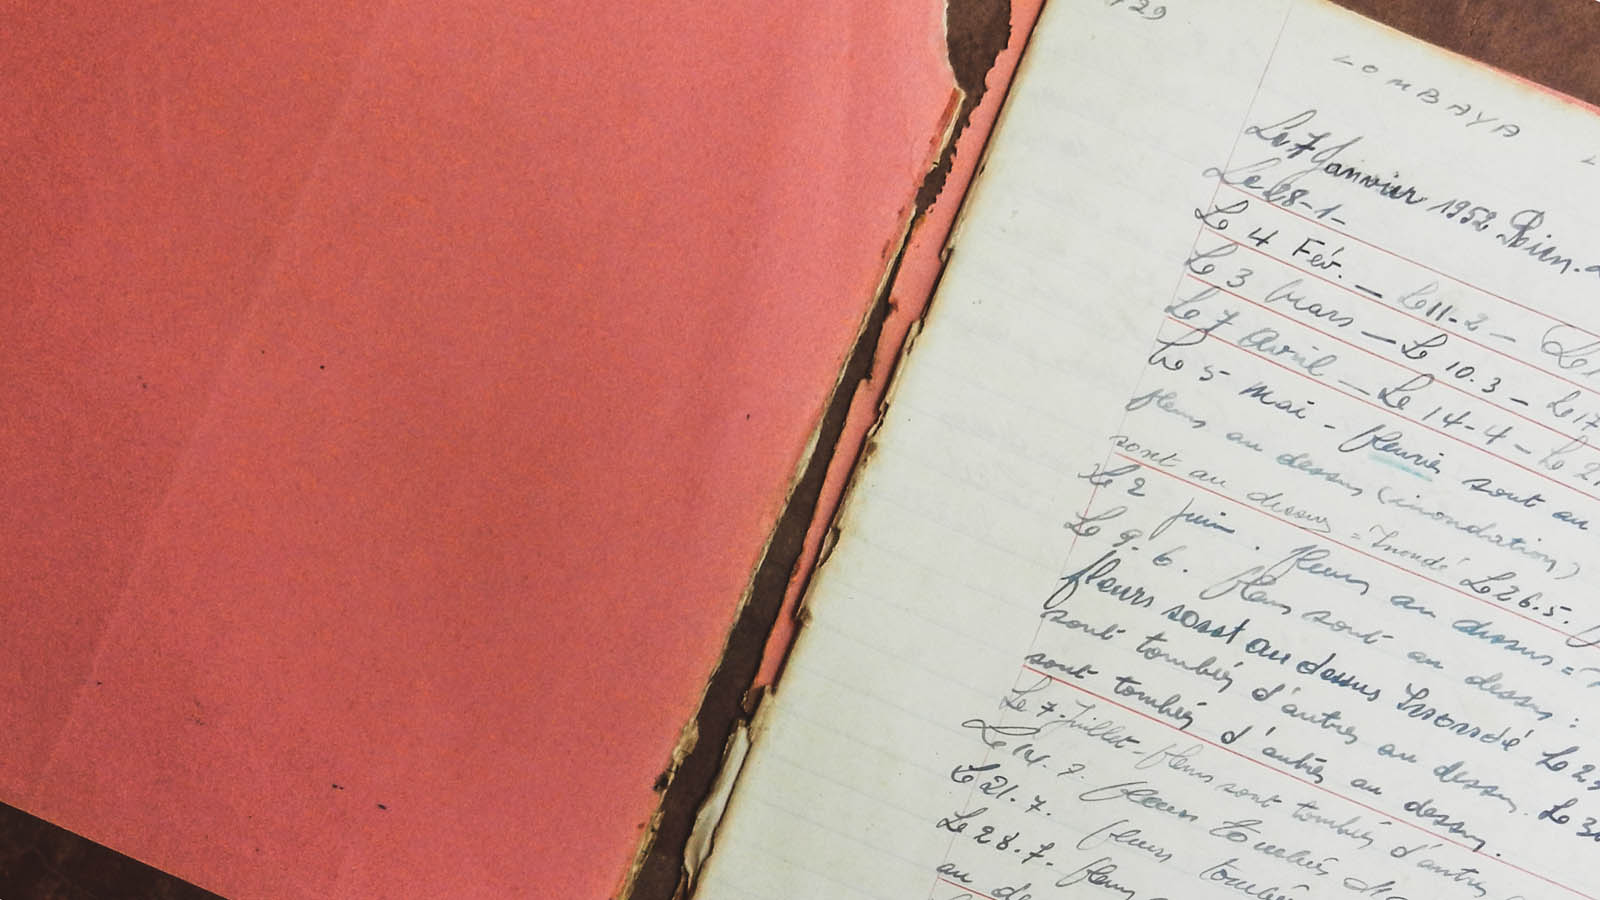 29
LOMBAYA
Le 7 Janvier 1952 Rien.
Le 28-1-
Le 4 Fév. — Le 11-2 —
Le 3 Mars — Le 10.3 — Le 17
Le 7 Avril — Le 14-4 — Le 2
Le 5 Mai - fleuries sont au
fleurs au dessus (inondation)
sont au dessus = Inondé Le 26.5.
Le 2 Juin. fleurs au dessus =
Le 9.6. fleurs sont au dessus :
fleurs sont au dessus Inondé Le 2
sont tombées d'autres au dessus. Le 3
sont tombées d'autres au dessus.
Le 7-Juillet-fleurs sont tombées d'autres
Le 14.7. fleurs tombées
Le 21.7. fleurs
Le 28.7. fleurs
au